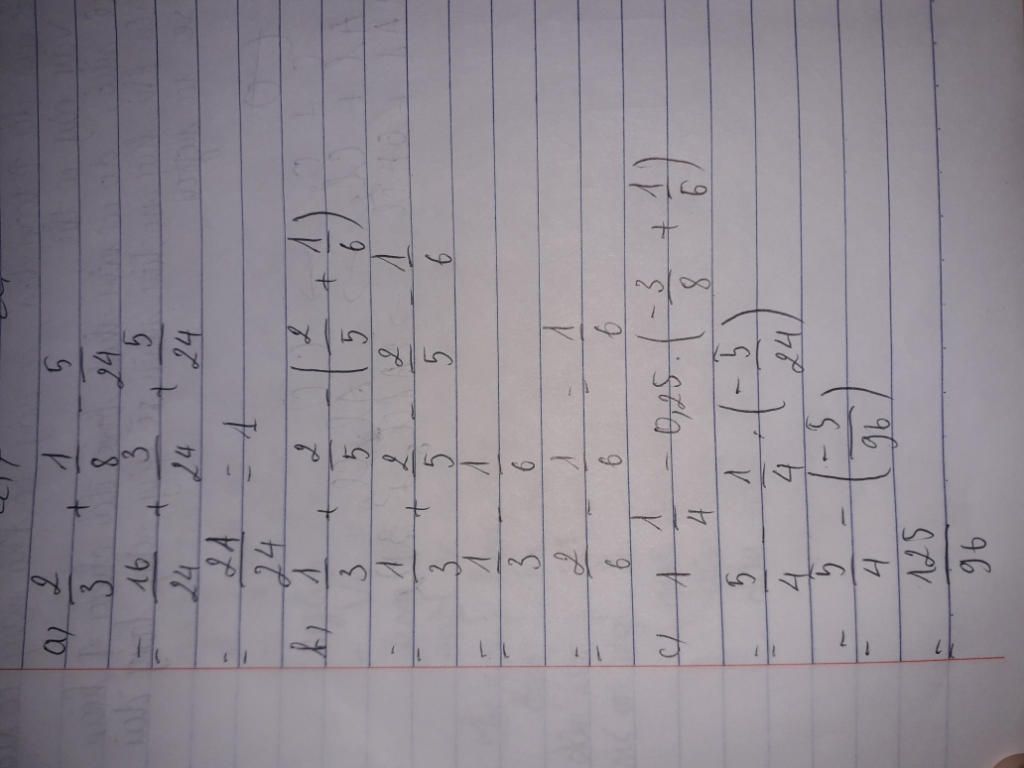 a) 2/3 + 1/8 - 5/24
= 16/24 + 3/24 + 5/24
= 21/24 = 1
b) 1/3 + 2/5 - (2/5 + 1/6)
= 1/3 + 2/5 - 2/5 - 1/6
= 1/3 - 1/6
= 2/6 - 1/6 = 1/6
c) 1 1/4 - 0,25 . (-3/8 + 1/6)
= 5/4 - 1/4 . (-5/24)
= 5/4 - (-5/96)
= 125/96